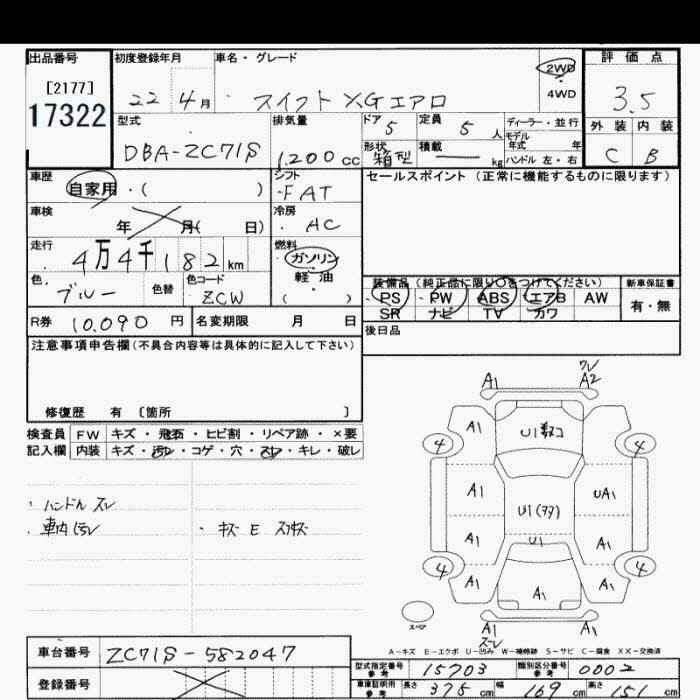 出品番号 初度登録年月 車名・グレード 2WD 評価点
[2177] 4WD
17322 22 4月 スイフト XGエアロ 3.5
型式 排気量 ドア 5 定員 5 人 ディーラー・並行 外装 内装
モデル
DBA-ZC71S 1,200 cc 形状 箱型 積載 kg 年式 年
ハンドル 左・右 C B
車歴 シフト セールスポイント (正常に機能するものに限ります)
自家用・( ) FAT
車検 冷房
年 月( 日) AC
走行 燃料
4万4千182km ガソリン
色 色替 色コード 軽油
ブルー ZCW ( )
装備品 (純正品に限り○をつけてください) 新車保証書
PS PW ABS エアB AW 有・無
SR ナビ TV カワ
R券 10,090 円 名変期限 月 日 後日品
注意事項申告欄(不具合内容等は具体的に記入して下さい)
修復歴 有 〔箇所 〕
検査員 FW キズ・飛石・ヒビ割・リペア跡・×要
記入欄 内装 キズ・汚レ・コゲ・穴・スレ・キレ・破レ
・ハンドル スレ
・車内汚レ ・キズ E スリキズ
ワレ
A1 A2
A1 U1
4 4
A1 U1 UA1
A1 U1 A1
4 4
A1 A1 A1
スペア
A1 A1
スレ
A－キズ E－エクボ U－凹み W－補修跡 S－サビ C－腐食 XX－交換済
車台番号 ZC71S-582047
型式指定番号 参考 15703 類別区分番号 参考 0002
登録番号
車庫証明用 参考 長さ 375 cm 幅 169 cm 高さ 151 cm